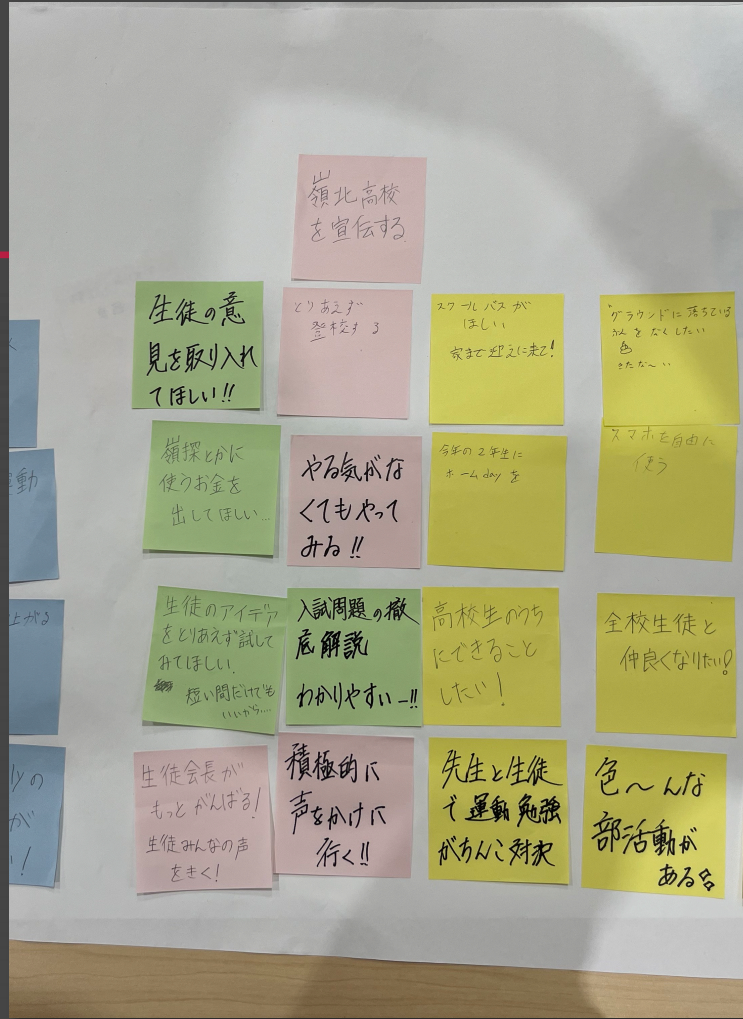 嶺北高校
を宣伝する
生徒の意
見を取り入れ
てほしい!!
とりあえず
登校する
スクールバスが
ほしい
家まで迎えに来て!
グラウンドに落ちている
をなくしたい
きたな〜い
嶺探とかに
使うお金を
出してほしい…
やる気がな
くてもやって
みる!!
今年の2年生に
ホームdayを
スマホを自由に
使う
生徒のアイデア
をとりあえず試して
みてほしい.
短い間だけでも
いいから….
入試問題の徹
底解説
わかりやすいー!!
高校生のうち
にできること
したい!
全校生徒と
仲良くなりたい!
生徒会長が
もっとがんばる!
生徒みんなの声
をきく!
積極的に
声をかけに
行く!!
先生と生徒
で運動勉強
がちんこ対決
色〜んな
部活動が
ある
動
上がる
lyの
が
!